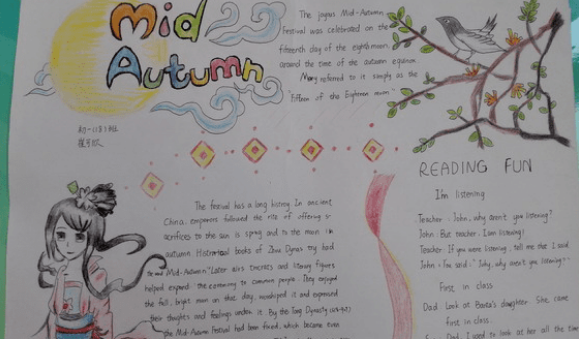 Mid
Autumn
The joyous Mid-Autumn
Festival was celebrated on the
fifteenth day of the eighth moon,
around the time of the autumn equinox.
Many referred to it simply as the
"Fifteen of the Eighteen moon"
初一
READING FUN
I'm listening
Teacher: John, why aren't you listening?
John: But teacher, I am listening!
Teacher: If you were listening, tell me the I said
John: You said: "John, why aren't you listening?"
First in class
Dad: Look at daughter. She came
first in class.
Dad, I used to look at her all the time
The festival has a long history. In ancient
China, emperors followed the rite of offering
sacrifices to the sun in spring and to the moon in
autumn. Historical books of Zhou Dynasty had
Mid-Autumn" Later and literary figures
helped expand the ceremony to common people. They enjoyed
the full, bright moon on that day, worshiped it and expressed
their thoughts and feelings under it. By the Tang Dynasty
the Mid-Autumn Festival had been fixed, which became even